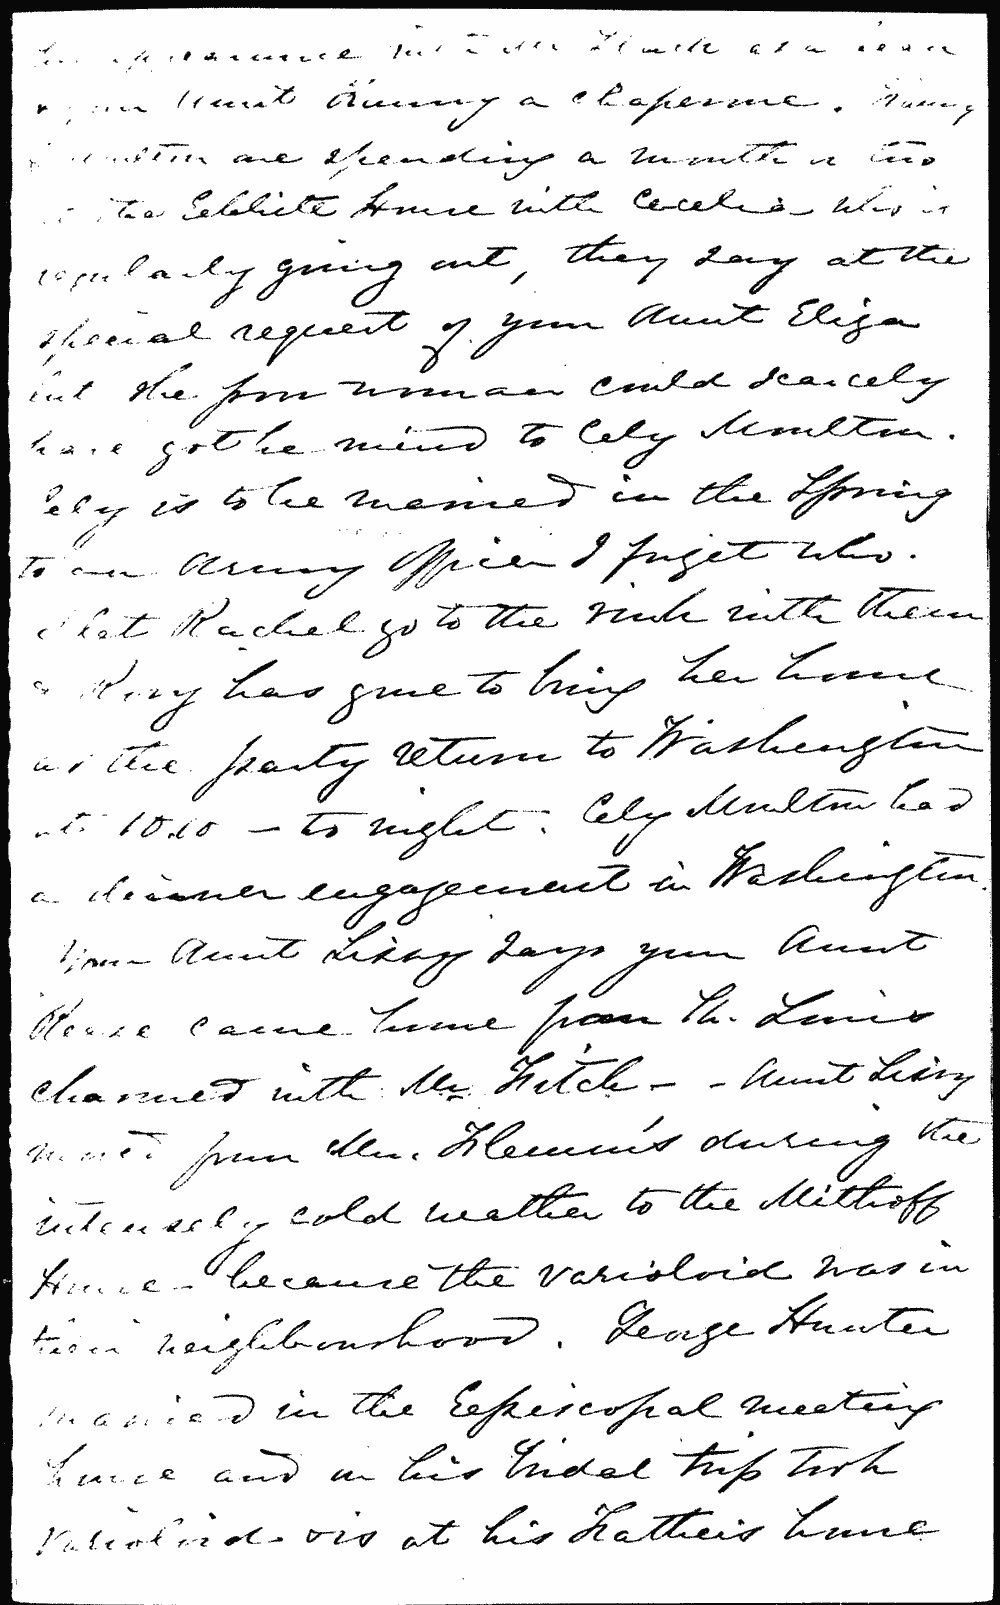 appearance with Mr Black as a beau
your Aunt Nanny a chaperone. Nanny
Moulton are spending a month or two
at the Ebbitte House with Cecelia who is
regularly going out, they say at the
special request of your Aunt Eliza
but she poor woman could scarcely
have got he mind to Cely Moulton.
Cely is to be married in the Spring
to an Army Officer I forget who.
I let Rachel go to the rink with them
& Rory has gone to bring her home
as the party return to Washington
at 10.10 — to night. Cely Moulton had
a dinner engagement in Washington.
Your Aunt Lissy says your Aunt
Reese came home from St. Louis
charmed with Mr Fitch — - Aunt Lissy
moved from Mrs. Flemm's during the
intensely cold weather to the Mithoff
House - because the varioloid was in
their neighbourhood. George Hunter
married in the Eepiscopal meeting
house and on his bridal trip took
varioloid - is at his Father's house